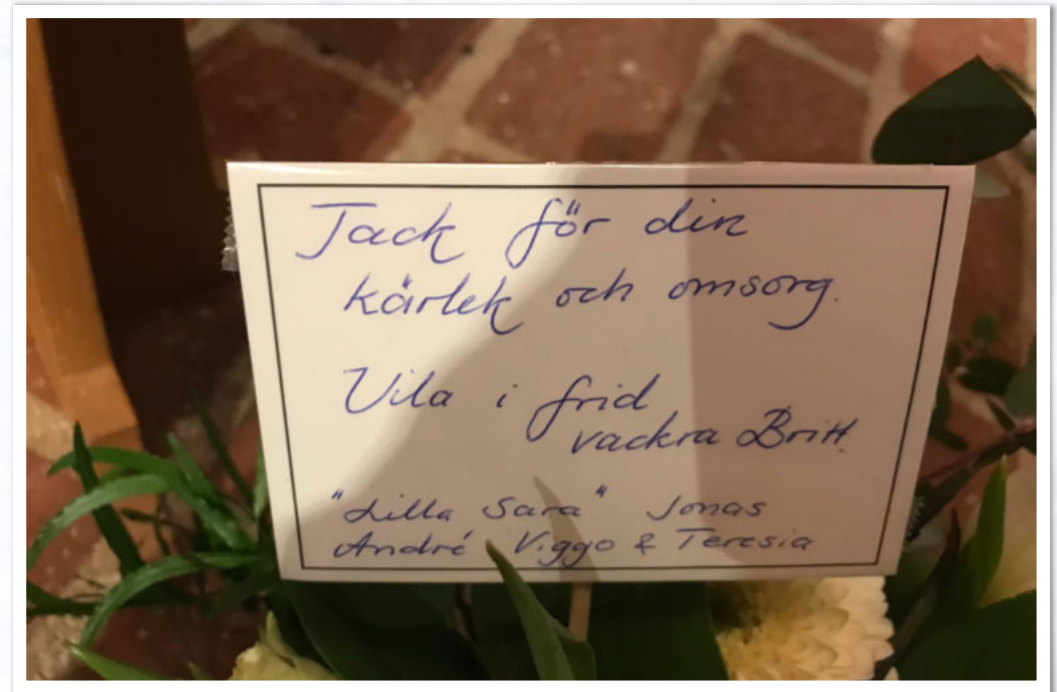 Tack för din
kärlek och omsorg.
Vila i frid
vackra Britt.
"Lilla Sara" Jonas
André Viggo & Teresia